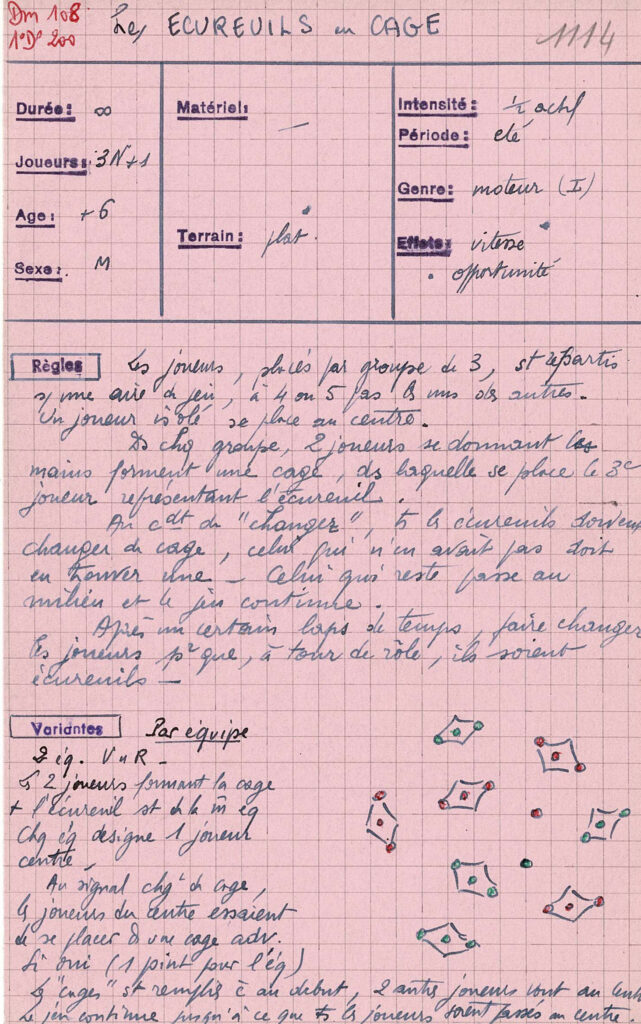 Dm 108
1°D° 200
Les ECUREUILS en CAGE
1114
Durée: ∞
Joueurs: 3N+1
Age: + 6
Sexe: M
Matériel: —
Terrain: plat.
Intensité: ½ actif
Période: eté
Genre: moteur (I)
Effets: vitesse
opportunité
Règles Les joueurs, placés par groupe de 3, st repartis
s/ une aire de jeu, à 4 ou 5 pas les uns des autres.
Un joueur isolé se place au centre.
Ds chq groupe, 2 joueurs se donnant les
mains forment une cage, ds laquelle se place le 3e
joueur représentant l'écureuil.
Au cdt de "changer", ts les écureuils doivent
changer de cage, celui qui n'en avait pas doit
en trouver une — Celui qui reste passe au
milieu et le jeu continue.
Après un certain laps de temps, faire changer
les joueurs pr que, à tour de rôle, ils soient
écureuils —
Variantes Par équipe
2 éq. V et R —
Ts 2 joueurs formant la cage
+ l'écureuil st de la m̄ éq
Chq éq designe 1 joueur
centre —
Au signal chgt de cage,
les joueurs du centre essaient
de se placer ds une cage adv.
Si oui (1 point pour l'éq)
Les "cages" st remplis c au debut, 2 autres joueurs vont au centre
Le jeu continue jusqu'à ce que ts les joueurs soient passés au centre.